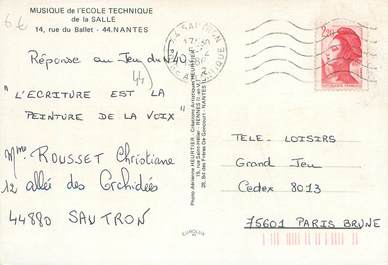 MUSIQUE de l'ECOLE TECHNIQUE
de la SALLE
14, rue du Ballet - 44.NANTES
Réponse au Jeu du N°40
"L'ECRITURE EST LA
PEINTURE DE LA VOIX"
Mme ROUSSET Christiane
12 allée des Orchidées
44880 SAUTRON
Photo Aérienne HEURTIER - Créations Artistiques HEURTIER
EUROLUX
44 SAUTRON
2,20
TELE-LOISIRS
Grand Jeu
Cedex 8013
75601 PARIS BRUNE